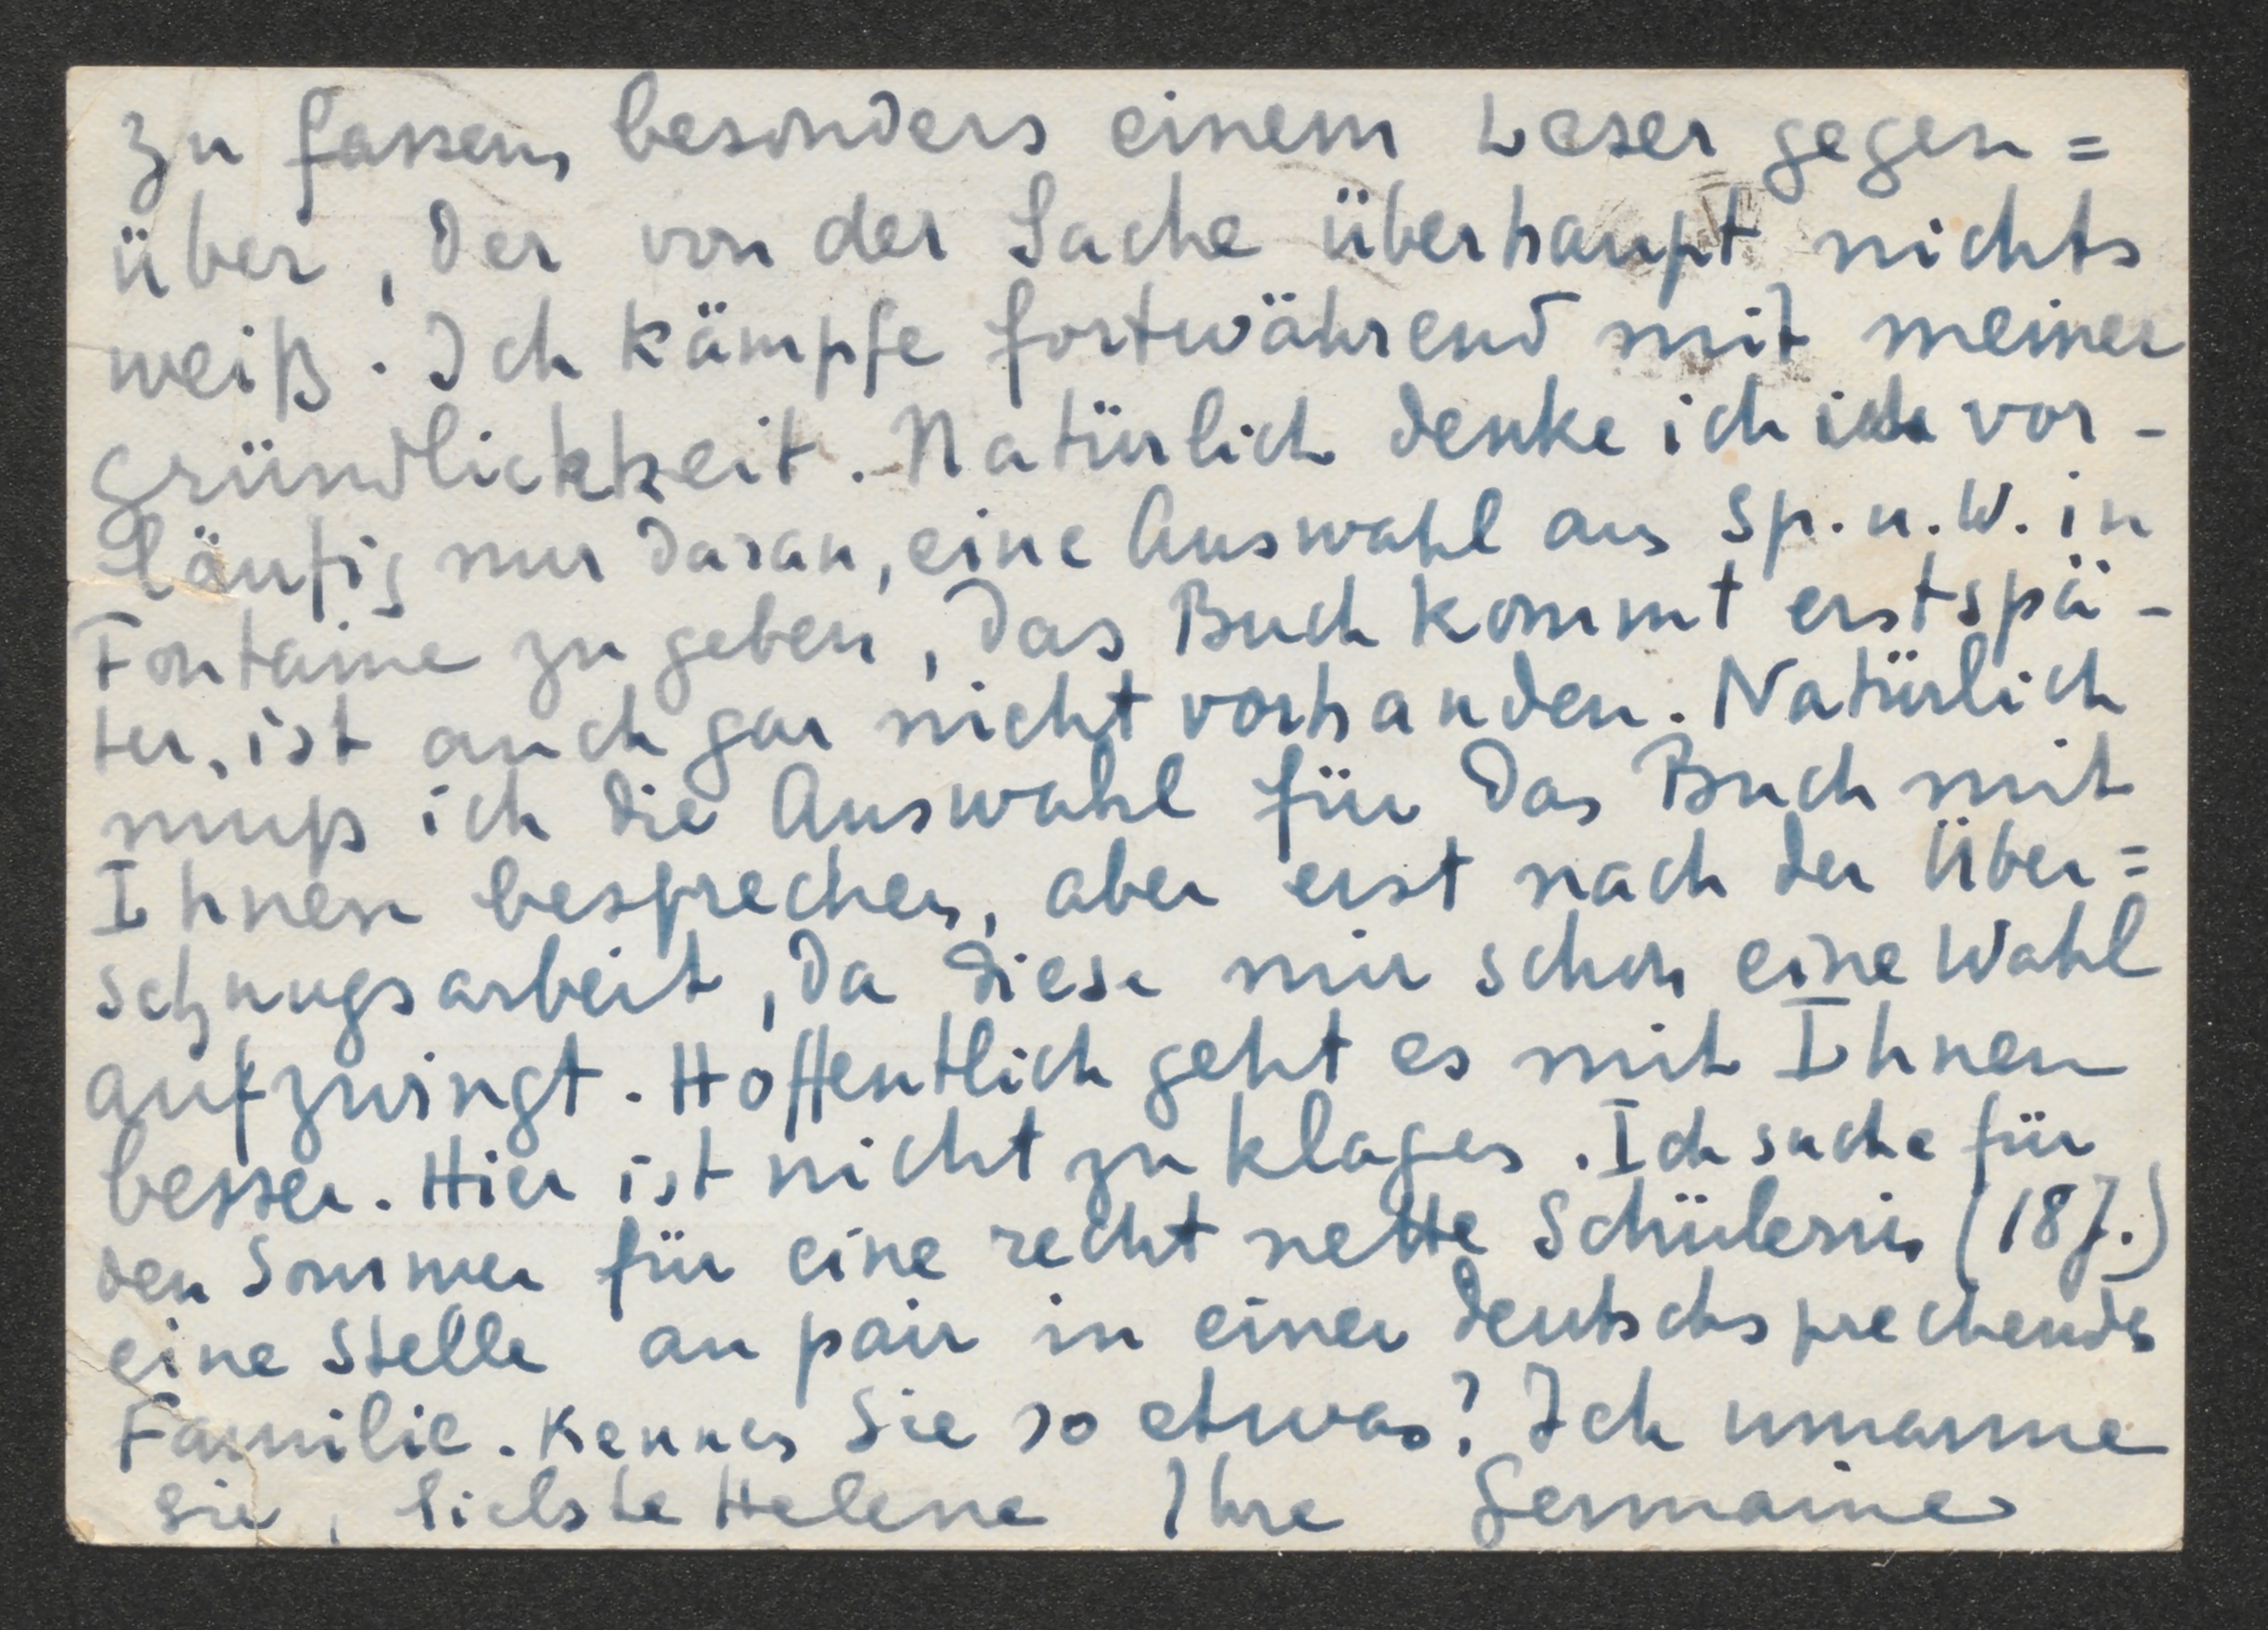 zu fassen, besonders einem Leser gegen=
über, der von der Sache überhaupt nichts
weiß. Ich kämpfe fortwährend mit meiner
Gründlichkeit. Natürlich denke ich ich vor-
läufig nur daran, eine Auswahl aus Sp. u. W. in
Fontaine zu geben, das Buch kommt erst spä-
ter, ist auch gar nicht vorhanden. Natürlich
muß ich die Auswahl für das Buch mit
Ihnen besprechen, aber erst nach der Über=
sezungsarbeit, da diese mir schon eine Wahl
aufzwingt. Hoffentlich geht es mit Ihnen
besser. Hier ist nicht zu klagen. Ich suche für
den Sommer für eine recht nette Schülerin (18 J.)
eine Stelle au pair in einer deutschsprechenden
Familie. Kennen Sie so etwas? Ich umarme
Sie, liebste Helene Ihre Germaine